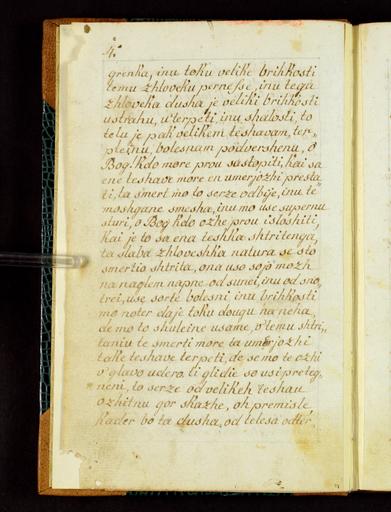 4.
grenka, inu toku velike brihkosti
temu zhloveku pernesse, inu tega
zhloveka dusha je veliki brihkosti
ustrahu, u'terpeti, inu shalosti, to
telu je pak velikem teshavam, ter-
plejnu, bolesnam poidvershenu, o
Bog! kdo more prou sastopiti, kai sa
ene teshave more en umerjozhi presta
ti, ta smert mo to serze odbije, inu te
moshgane smesha, inu mo use supernu
sturi, o Bog kdo ozhe prou isloshiti,
kai je to sa ena teshka shtritenga,
ta slaba zhloveshka natura se sto
smertio shtrita, ona uso sojo mozh
na naglem napne od sunei, inu od sno,
trei, use sorte bolesni, inu brihkosti
mo noter daje toku dougu na neha,
de mo to shuleine usame, v'temu shtri,,
taniu te smerti more ta umerjozhi
take teshave terpeti, de se mo te ozhi
v'glavo udero, ti glidie so usi preteg,
neni, to serze od velikeh teshau
ozhitnu gor skazhe, oh premisle
kader bo ta dusha, od telesa odter